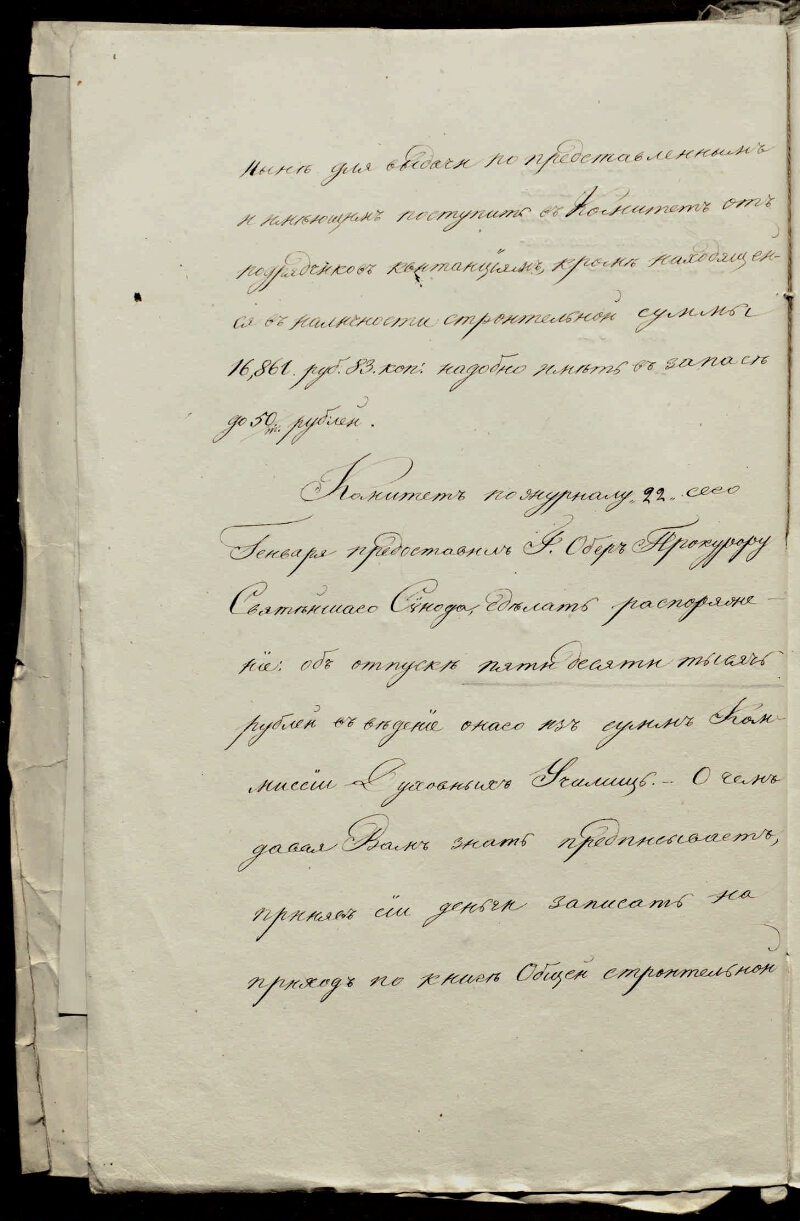 нынѣ для выдачи по представленнымъ
и имѣющимъ поступить въ Комитетъ отъ
подрядчиковъ квитанціямъ, кромѣ находящей-
ся въ наличности строительной суммы
16,861. руб. 83. коп: надобно имѣть въ запасѣ
до 50/т. рублей.
Комитетъ по журналу „22„ сего
Генваря предоставилъ Г. Оберъ Прокурору
Святѣйшаго Сѵнода, сдѣлать распоряже-
ніе: объ отпускѣ пятидесяти тысячь
рублей въ вѣденіе онаго изъ суммъ Ком-
миссіи Духовныхъ Училищъ. – О чемъ
давая Вамъ знать предписываетъ,
принявъ сіи деньги записать на
приходъ по книгѣ Общей строительной